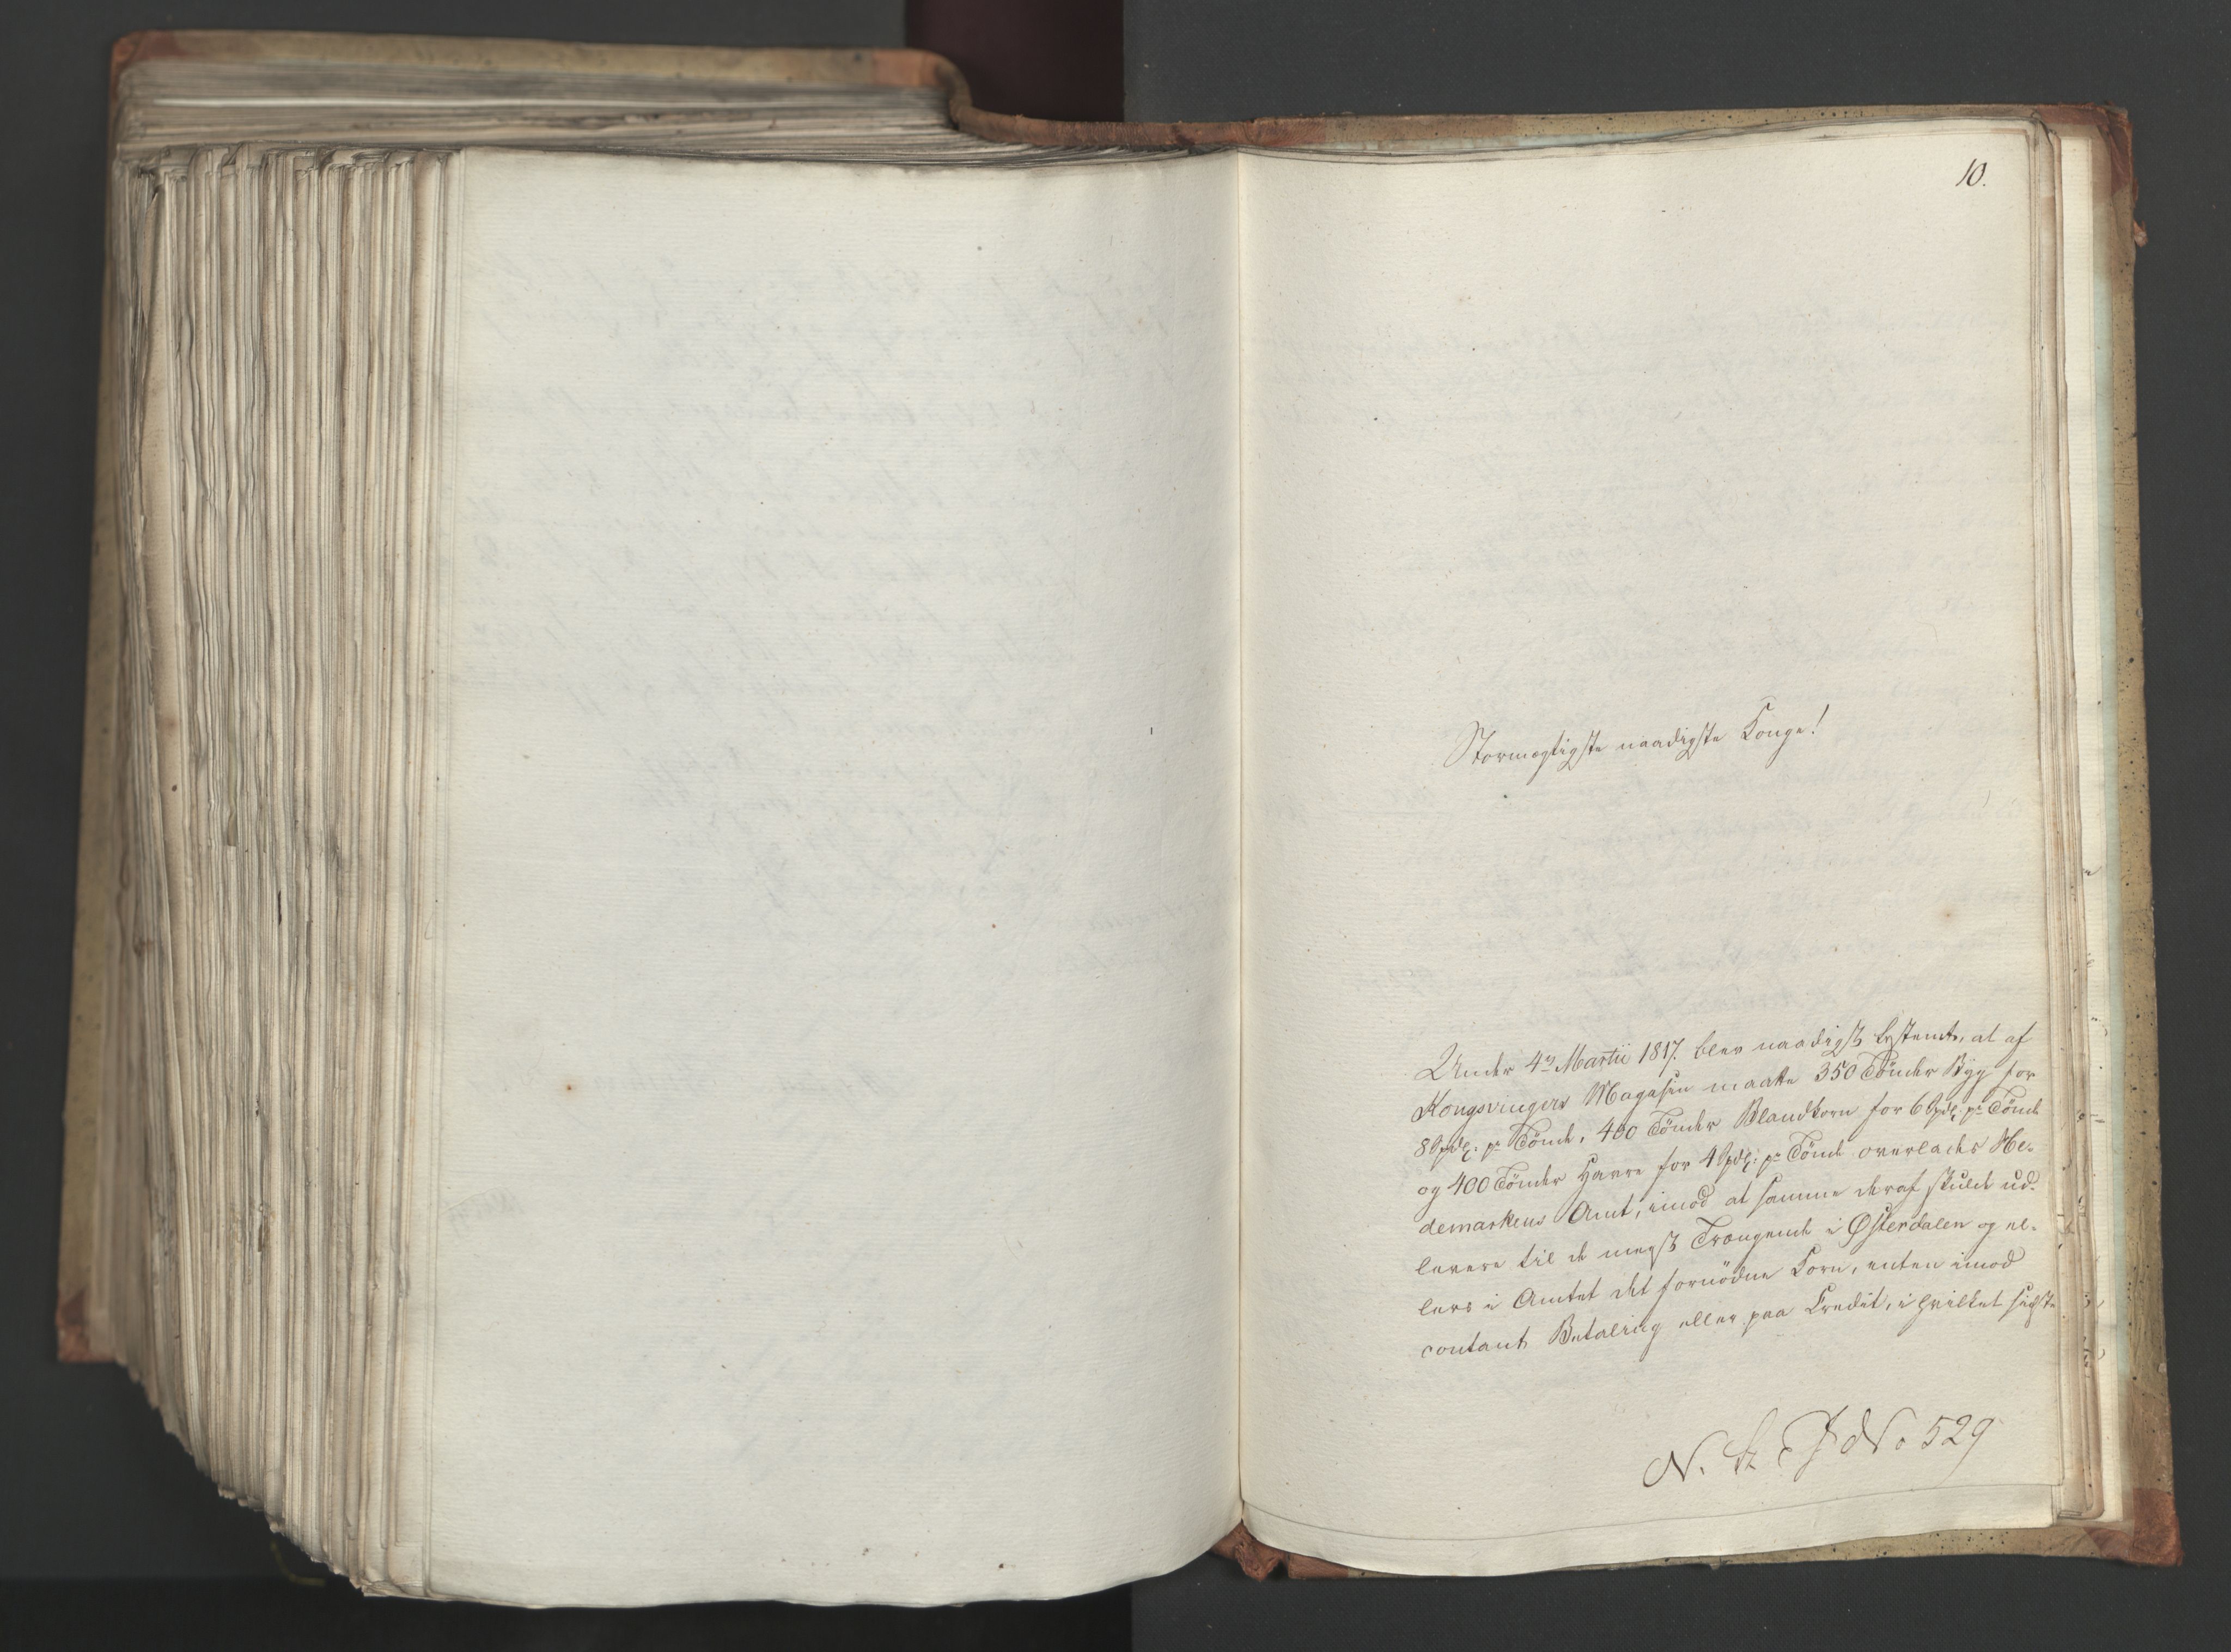 10.
Stormægtigste naadigste Konge!
Under 4de Martii 1817. blev naadigst bestemt, at af
Kongsvingers Magasin maatte 350 Tønder Byg for
8 Spdlr: pr Tønde, 400 Tønder Blandkorn for 6 Spdlr. pr Tønde
og 400 Tønder Havre for 4 Spdlr: pr Tønde overlades He-
demarkens Amt, imod at samme deraf skulde ud-
levere til de meest Trængende i Østerdalen og el-
lers i Amtet det fornødne Korn, enten imod
contant Betaling eller paa Credit, i hvilket sidste
N. St. J No 529